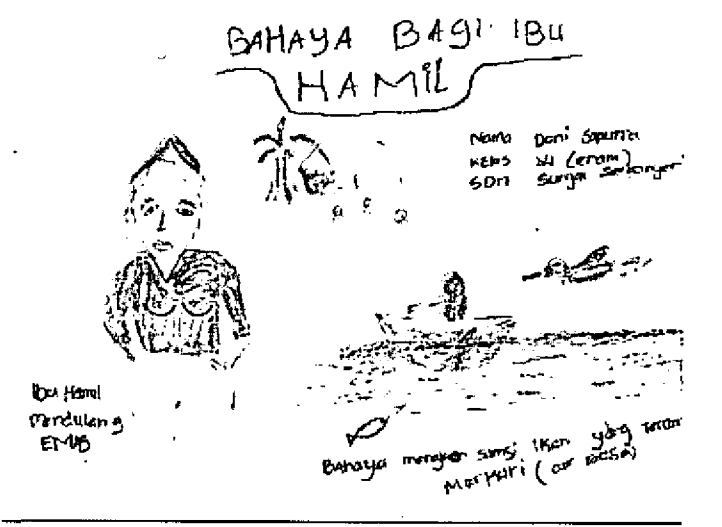 BAHAYA BAGI IBU
HAMIL
Nama Doni Saputra
Kelas VI (enam)
SDN Sungai
Ibu Hamil
Mendulang
EMAS
BAHAYA mengkonsumsi ikan yang
Markuri (air